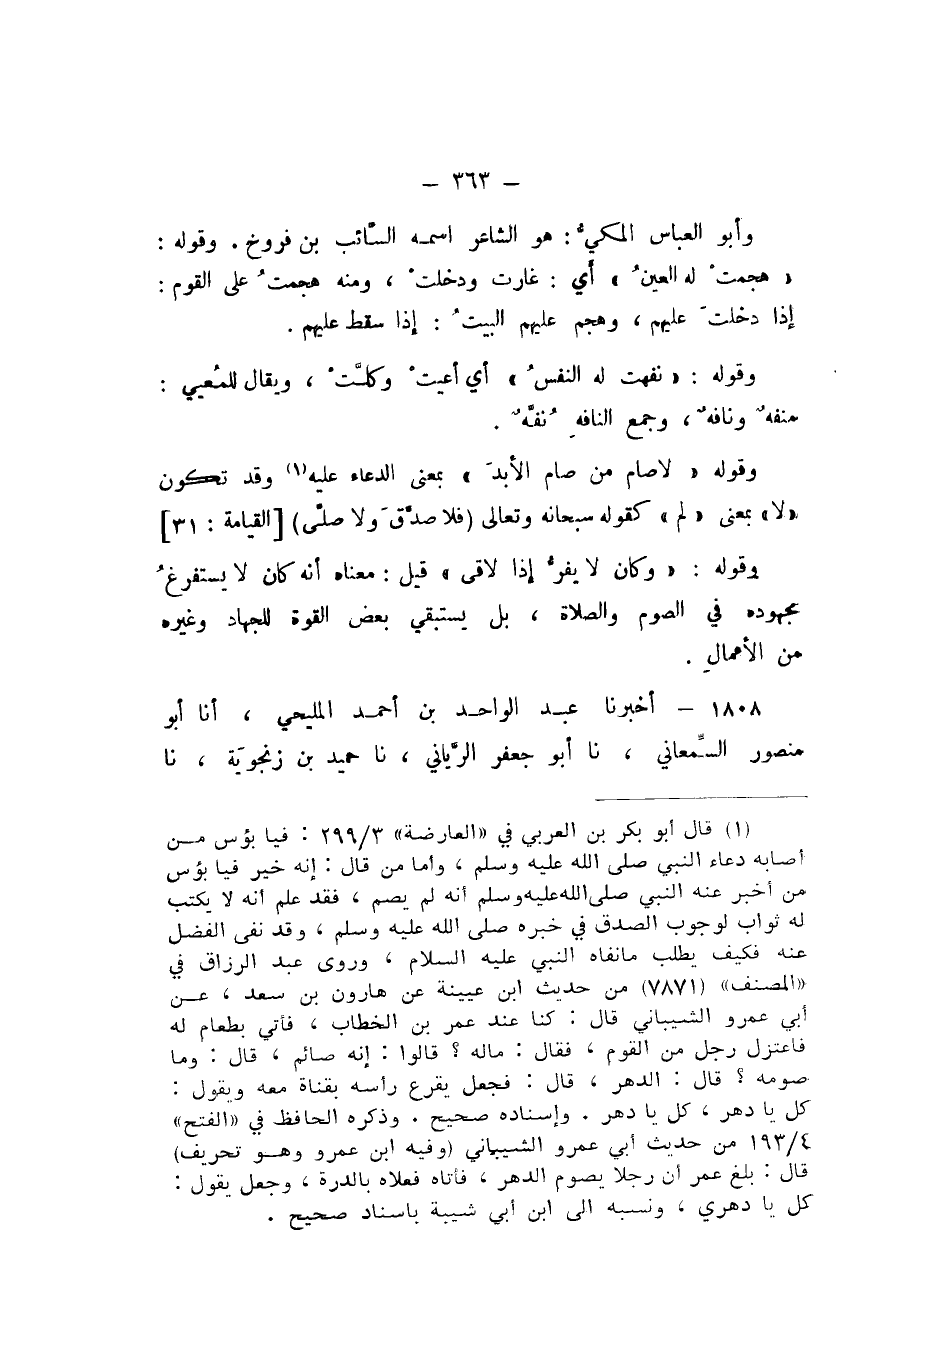 – ٣٦٣ –
وأبو العباس المكيُّ : هو الشاعر اسمه السَّائب بن فروخ . وقوله :
« هجمتْ له العينُ » أي : غارت ودخلتْ ، ومنه هجمتُ على القوم :
إذا دخلتَ عليهم ، وهجم عليهم البيتُ : إذا سقط عليهم .
وقوله : « نفهت له النفسُ » أي أعيتْ وكلَّتْ ، ويقال للمُعيي :
منفهٌ ونافهٌ ، وجمع النافهِ نُفَّهٌ .
وقوله « لا صام من صام الأبدَ » بمعنى الدعاء عليه(١) وقد تكون
«لا» بمعنى « لم » كقوله سبحانه وتعالى (فلا صدَّق ولا صلَّى) [القيامة : ٣١]
وقوله : « وكان لا يفرُّ إذا لاقى » قيل : معناه أنه كان لا يستفرغُ
مجهوده في الصوم والصلاة ، بل يستبقي بعض القوة للجهاد وغيره
من الأعمالِ .
١٨٠٨ – أخبرنا عبد الواحد بن أحمد المليحي ، أنا أبو
منصور السِّمعاني ، نا أبو جعفر الرَّياني ، نا حميد بن زنجويَة ، نا
(١) قال أبو بكر بن العربي في «العارضة» ٢٩٩/٣ : فيا بؤس من
أصابه دعاء النبي صلى الله عليه وسلم ، وأما من قال : إنه خير فيا بؤس
من أخبر عنه النبي صلى الله عليه وسلم أنه لم يصم ، فقد علم أنه لا يكتب
له ثواب لوجوب الصدق في خبره صلى الله عليه وسلم ، وقد نفى الفضل
عنه فكيف يطلب مانفاه النبي عليه السلام ، وروى عبد الرزاق في
«المصنف» (٧٨٧١) من حديث ابن عيينة عن هارون بن سعد ، عن
أبي عمرو الشيباني قال : كنا عند عمر بن الخطاب ، فأتي بطعام له
فاعتزل رجل من القوم ، فقال : ماله ؟ قالوا : إنه صائم ، قال : وما
صومه ؟ قال : الدهر ، قال : فجعل يقرع رأسه بقناة معه ويقول :
كل يا دهر ، كل يا دهر . وإسناده صحيح . وذكره الحافظ في «الفتح»
١٩٣/٤ من حديث أبي عمرو الشيباني (وفيه ابن عمرو وهو تحريف)
قال : بلغ عمر أن رجلا يصوم الدهر ، فأتاه فعلاه بالدرة ، وجعل يقول :
كل يا دهري ، ونسبه الى ابن أبي شيبة باسناد صحيح .